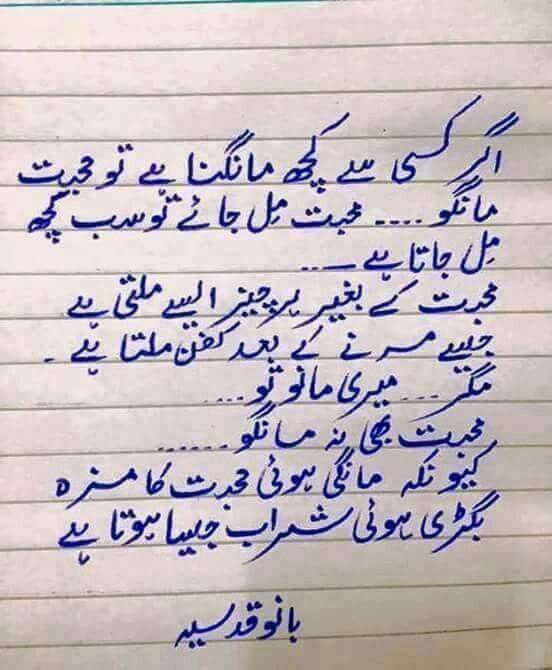 اگر کسی سے کچھ مانگنا ہے تو محبت
مانگو .... محبت مِل جائے تو سب کچھ
مِل جاتا ہے ....
محبت کے بغیر ہر چیز ایسے ملتی ہے
جیسے مرنے کے بعد کفن ملتا ہے ۔
مگر ... میری مانو تو ....
محبت بھی نہ مانگو ......
کیونکہ مانگی ہوئی محبت کا مزہ
بگڑی ہوئی شراب جیسا ہوتا ہے
بانو قدسیہ